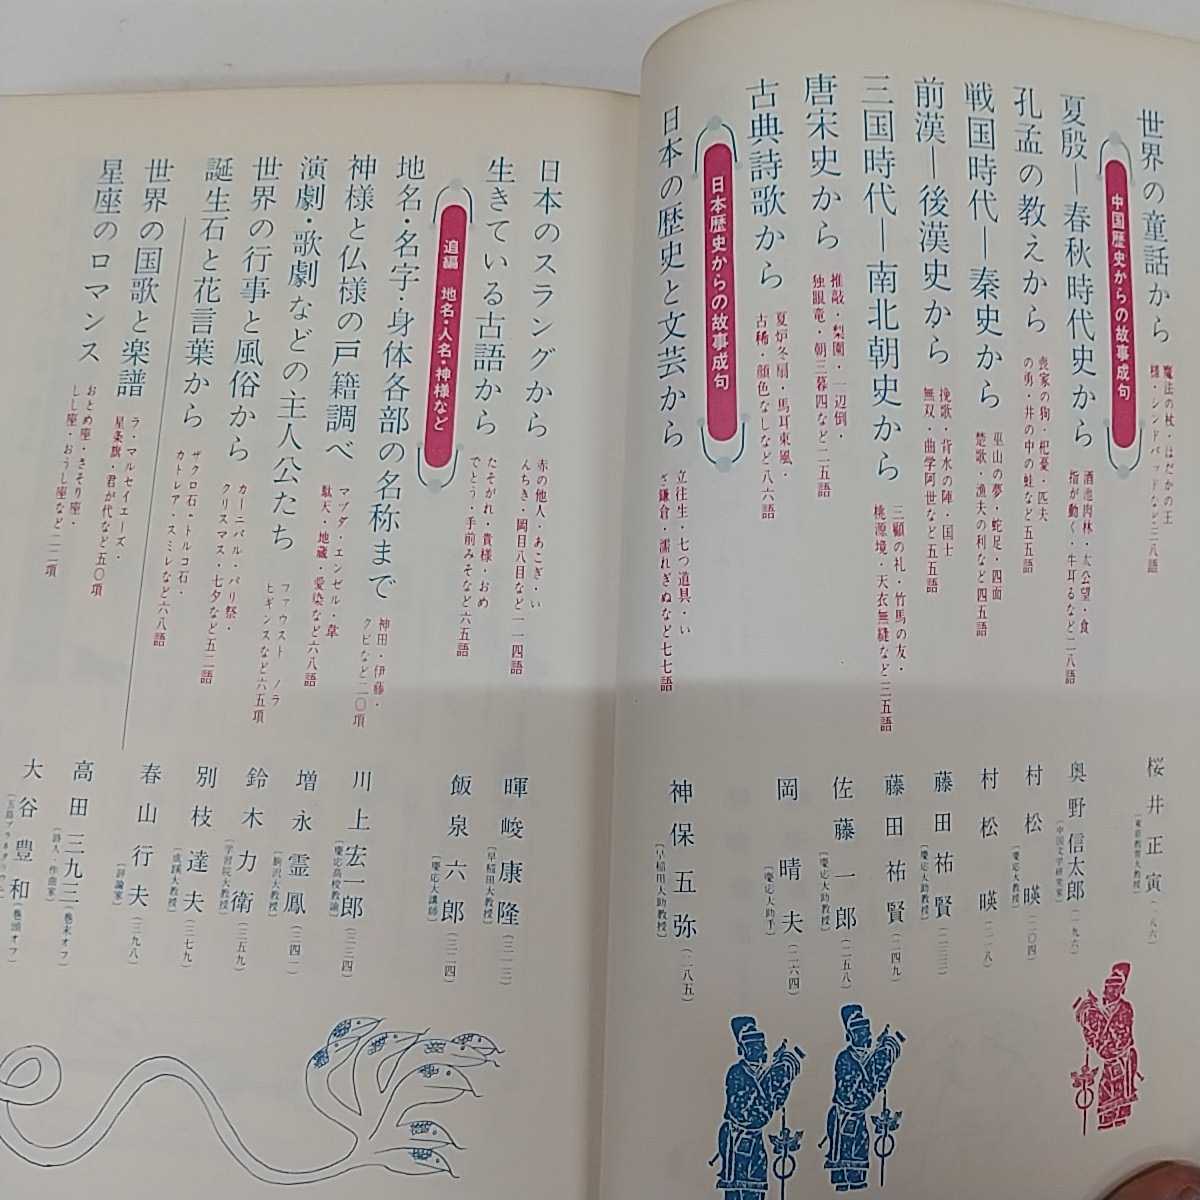 世界の童話から
魔法の杖・はだかの王
様・シンドバッドなど三八語
桜井正寅
(一八六)
〔東京教育大教授〕
中国歴史からの故事成句
夏殷―春秋時代史から
酒池肉林・太公望・食
指が動く・牛耳るなど二八語
奥野信太郎
(一九六)
〔中国文学研究家〕
孔孟の教えから
喪家の狗・杞憂・匹夫
の勇・井の中の蛙など五五語
村松暎
(二〇四)
〔慶応大教授〕
戦国時代―秦史から
巫山の夢・蛇足・四面
楚歌・漁夫の利など四五語
村松暎
(二一八)
前漢―後漢史から
挽歌・背水の陣・国士
無双・曲学阿世など五五語
藤田祐賢
(二三三)
〔慶応大助教授〕
三国時代―南北朝史から
三顧の礼・竹馬の友・
桃源境・天衣無縫など三五語
藤田祐賢
(二四九)
唐宋史から
推敲・梨園・一辺倒・
独眼竜・朝三暮四など二五語
佐藤一郎
(二五八)
〔慶応大助教授〕
古典詩歌から
夏炉冬扇・馬耳東風・
古稀・顔色なしなど八六語
岡晴夫
(二六四)
〔慶応大助手〕
日本歴史からの故事成句
日本の歴史と文芸から
立往生・七つ道具・い
ざ鎌倉・濡れぎぬなど七七語
神保五弥
(二八五)
〔早稲田大助教授〕
日本のスラングから
赤の他人・あこぎ・い
んちき・岡目八目など一一四語
暉峻康隆
(三一三)
〔早稲田大教授〕
生きている古語から
たそがれ・貴様・おめ
でとう・手前みそなど六五語
飯泉六郎
(三二四)
〔慶応大講師〕
追編 地名・人名・神様など
地名・名字・身体各部の名称まで
神田・伊藤・
クビなど二〇項
川上宏一郎
(三三四)
〔慶応高校教諭〕
神様と仏様の戸籍調べ
マツダ・エンゼル・韋
駄天・地蔵・愛染など六八語
増永霊鳳
(三四一)
〔駒沢大教授〕
演劇・歌劇などの主人公たち
ファウスト ノラ
ヒギンスなど六五項
鈴木力衛
(三五九)
〔学習院大教授〕
世界の行事と風俗から
カーニバル・パリ祭・
クリスマス・七夕など五二語
別枝達夫
(三七九)
〔成蹊大教授〕
誕生石と花言葉から
ザクロ石・トルコ石・
カトレア・スミレなど六八語
春山行夫
(三九八)
〔評論家〕
世界の国歌と楽譜
ラ・マルセイエーズ・
星条旗・君が代など五〇項
高田三九三
(巻末オフ)
〔詩人・作曲家〕
星座のロマンス
おとめ座・さそり座・
しし座・おうし座など二二項
大谷豊和
(巻頭オフ)